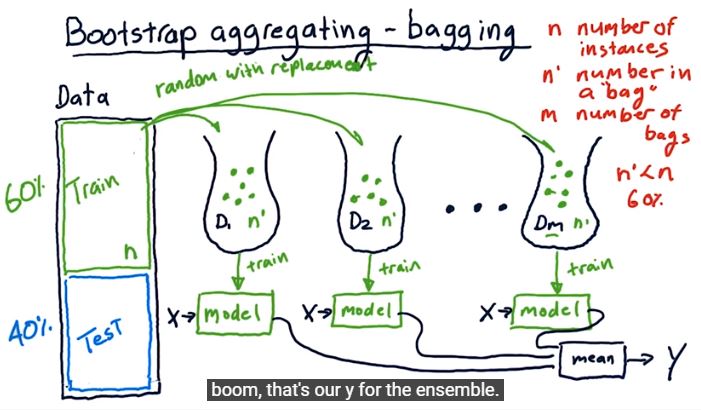 Bootstrap aggregating - bagging
n number of
instances
n' number in
a "bag"
m number of
bags
n'<n
60%
random with replacement
Data
60%
Train
n
40%
Test
D1 n'
D2 n'
...
Dm n'
train
train
train
X→ model
X→ model
X→ model
mean → Y
boom, that's our y for the ensemble.